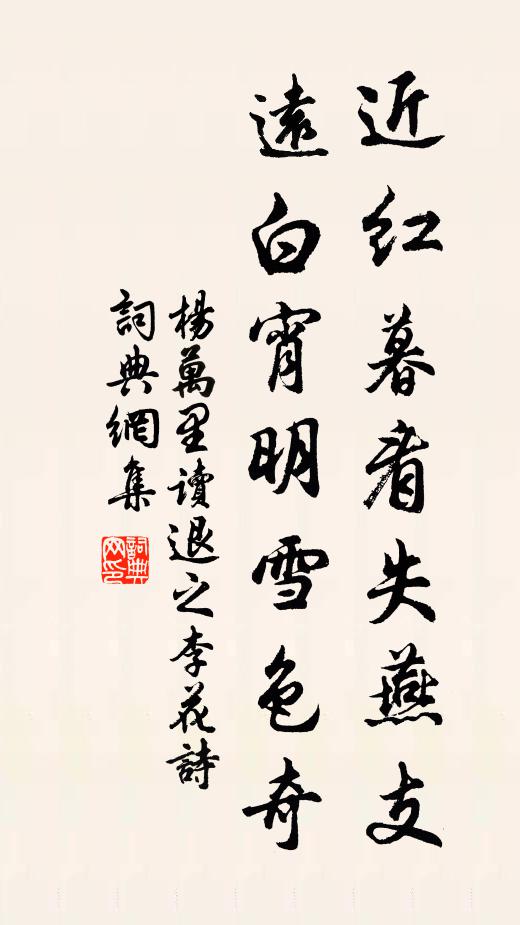 近紅暮看失燕支
遠白宵明雪色奇
楊萬里讀退之李花詩
詞典網集
詞典網印